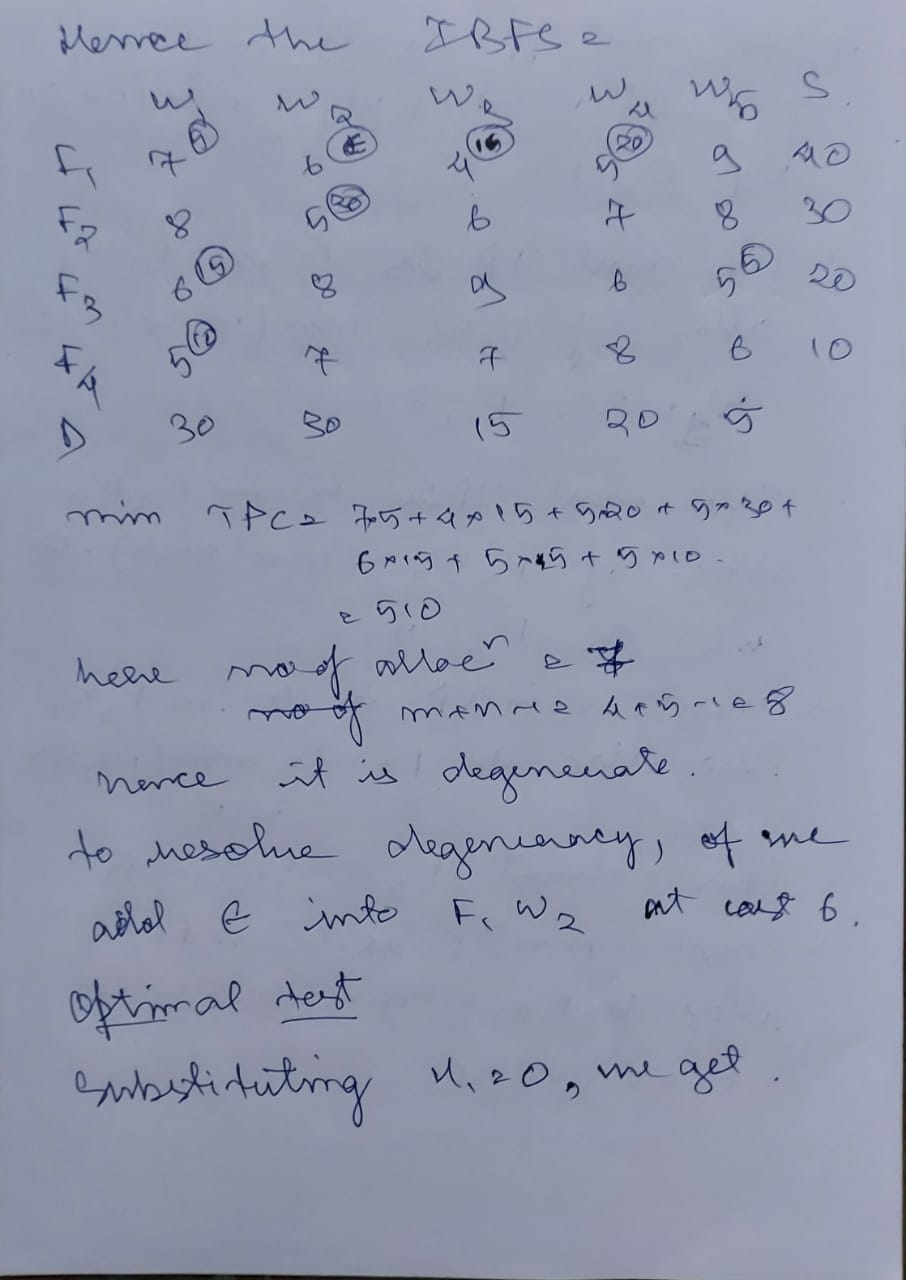 Hence the IBFS =
W1 W2 W3 W4 W5 S.
F1 7 (5) 6 (E) 4 (15) 5 (20) 9 40
F2 8 5 (30) 6 7 8 30
F3 6 (15) 8 9 6 5 (5) 20
F4 5 (10) 7 7 8 6 10
D 30 30 15 20 5
min TPC = 7×5 + 4×15 + 5×20 + 5×30 +
6×15 + 5×5 + 5×10.
= 510
here no of allocn = 7
no of m+n-1 = 4+5-1 = 8
Hence it is degenerate.
to resolve degenerancy, of we
add E into F1 W2 at cost 6.
Optimal test
Substituting u1 = 0, we get.